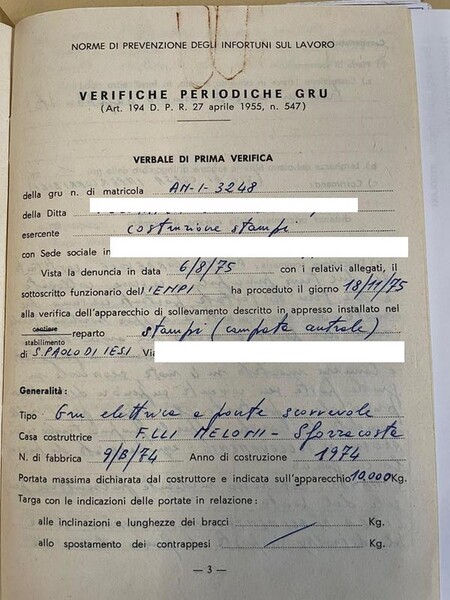 NORME DI PREVENZIONE DEGLI INFORTUNI SUL LAVORO
VERIFICHE PERIODICHE GRU
(Art. 194 D. P. R. 27 aprile 1955, n. 547)
VERBALE DI PRIMA VERIFICA
della gru n. di matricola AN-1-3248
della Ditta
esercente costruzione stampi
con Sede sociale in
Vista la denuncia in data 6/8/75 con i relativi allegati, il
sottoscritto funzionario dell'ENPI ha proceduto il giorno 18/11/75
alla verifica dell'apparecchio di sollevamento descritto in appresso installato nel
cantiere reparto stampi (campata centrale)
stabilimento
di S. PAOLO DI IESI Via
Generalità :
Tipo Gru elettrica a ponte scorrevole
Casa costruttrice F.LLI MELONI - Sforzacosta
N. di fabbrica 9/B/74 Anno di costruzione 1974
Portata massima dichiarata dal costruttore e indicata sull'apparecchio 10.000 Kg.
Targa con le indicazioni delle portate in relazione :
alle inclinazioni e lunghezze dei bracci Kg.
allo spostamento dei contrappesi Kg.
— 3 —